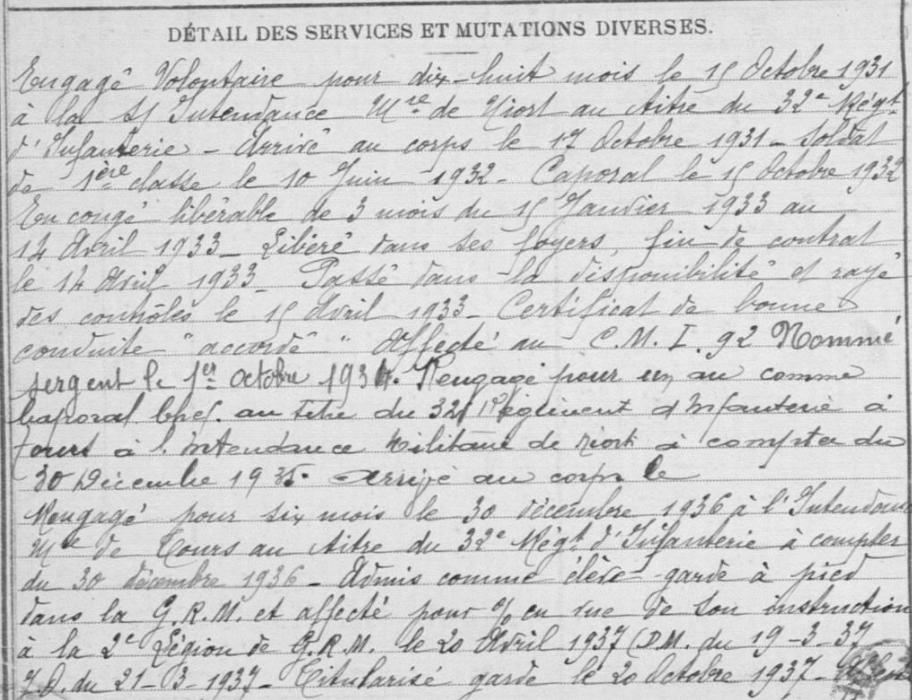 DÉTAIL DES SERVICES ET MUTATIONS DIVERSES.
Engagé Volontaire pour dix-huit mois le 15 Octobre 1931
à la S/ Intendance Mre de Niort au titre du 32e Régt
d'Infanterie - Arrivé au corps le 17 Octobre 1931 - Soldat
de 1ère classe le 10 Juin 1932 - Caporal le 15 Octobre 1932
En congé libérable de 3 mois du 15 Janvier 1933 au
14 Avril 1933 - Libéré dans ses foyers, fin de contrat
le 14 Avril 1933 - Passé dans la disponibilité et rayé
des contrôles le 15 Avril 1933 - Certificat de bonne
conduite "accordé" Affecté au C.M.I. 92 Nommé
sergent le 1er octobre 1934. Rengagé pour un an comme
Caporal Chef. au titre du 32e Régiment d'Infanterie à
Tours à l'intendance Militaire de Niort à compter du
30 Décembre 1935. Arrivé au corps le
Rengagé pour six mois le 30 décembre 1936 à l'Intendance
Mre de Tours au titre du 32e Régt d'Infanterie à compter
du 30 décembre 1936 - Admis comme élève garde à pied
dans la G.R.M. et affecté pour o/ en vue de son instruction
à la 2e Légion de G.R.M. le 20 Avril 1937 (D.M. du 19-3-37
J.O. du 21-3-1937 - Titularisé garde le 20 octobre 1937 -